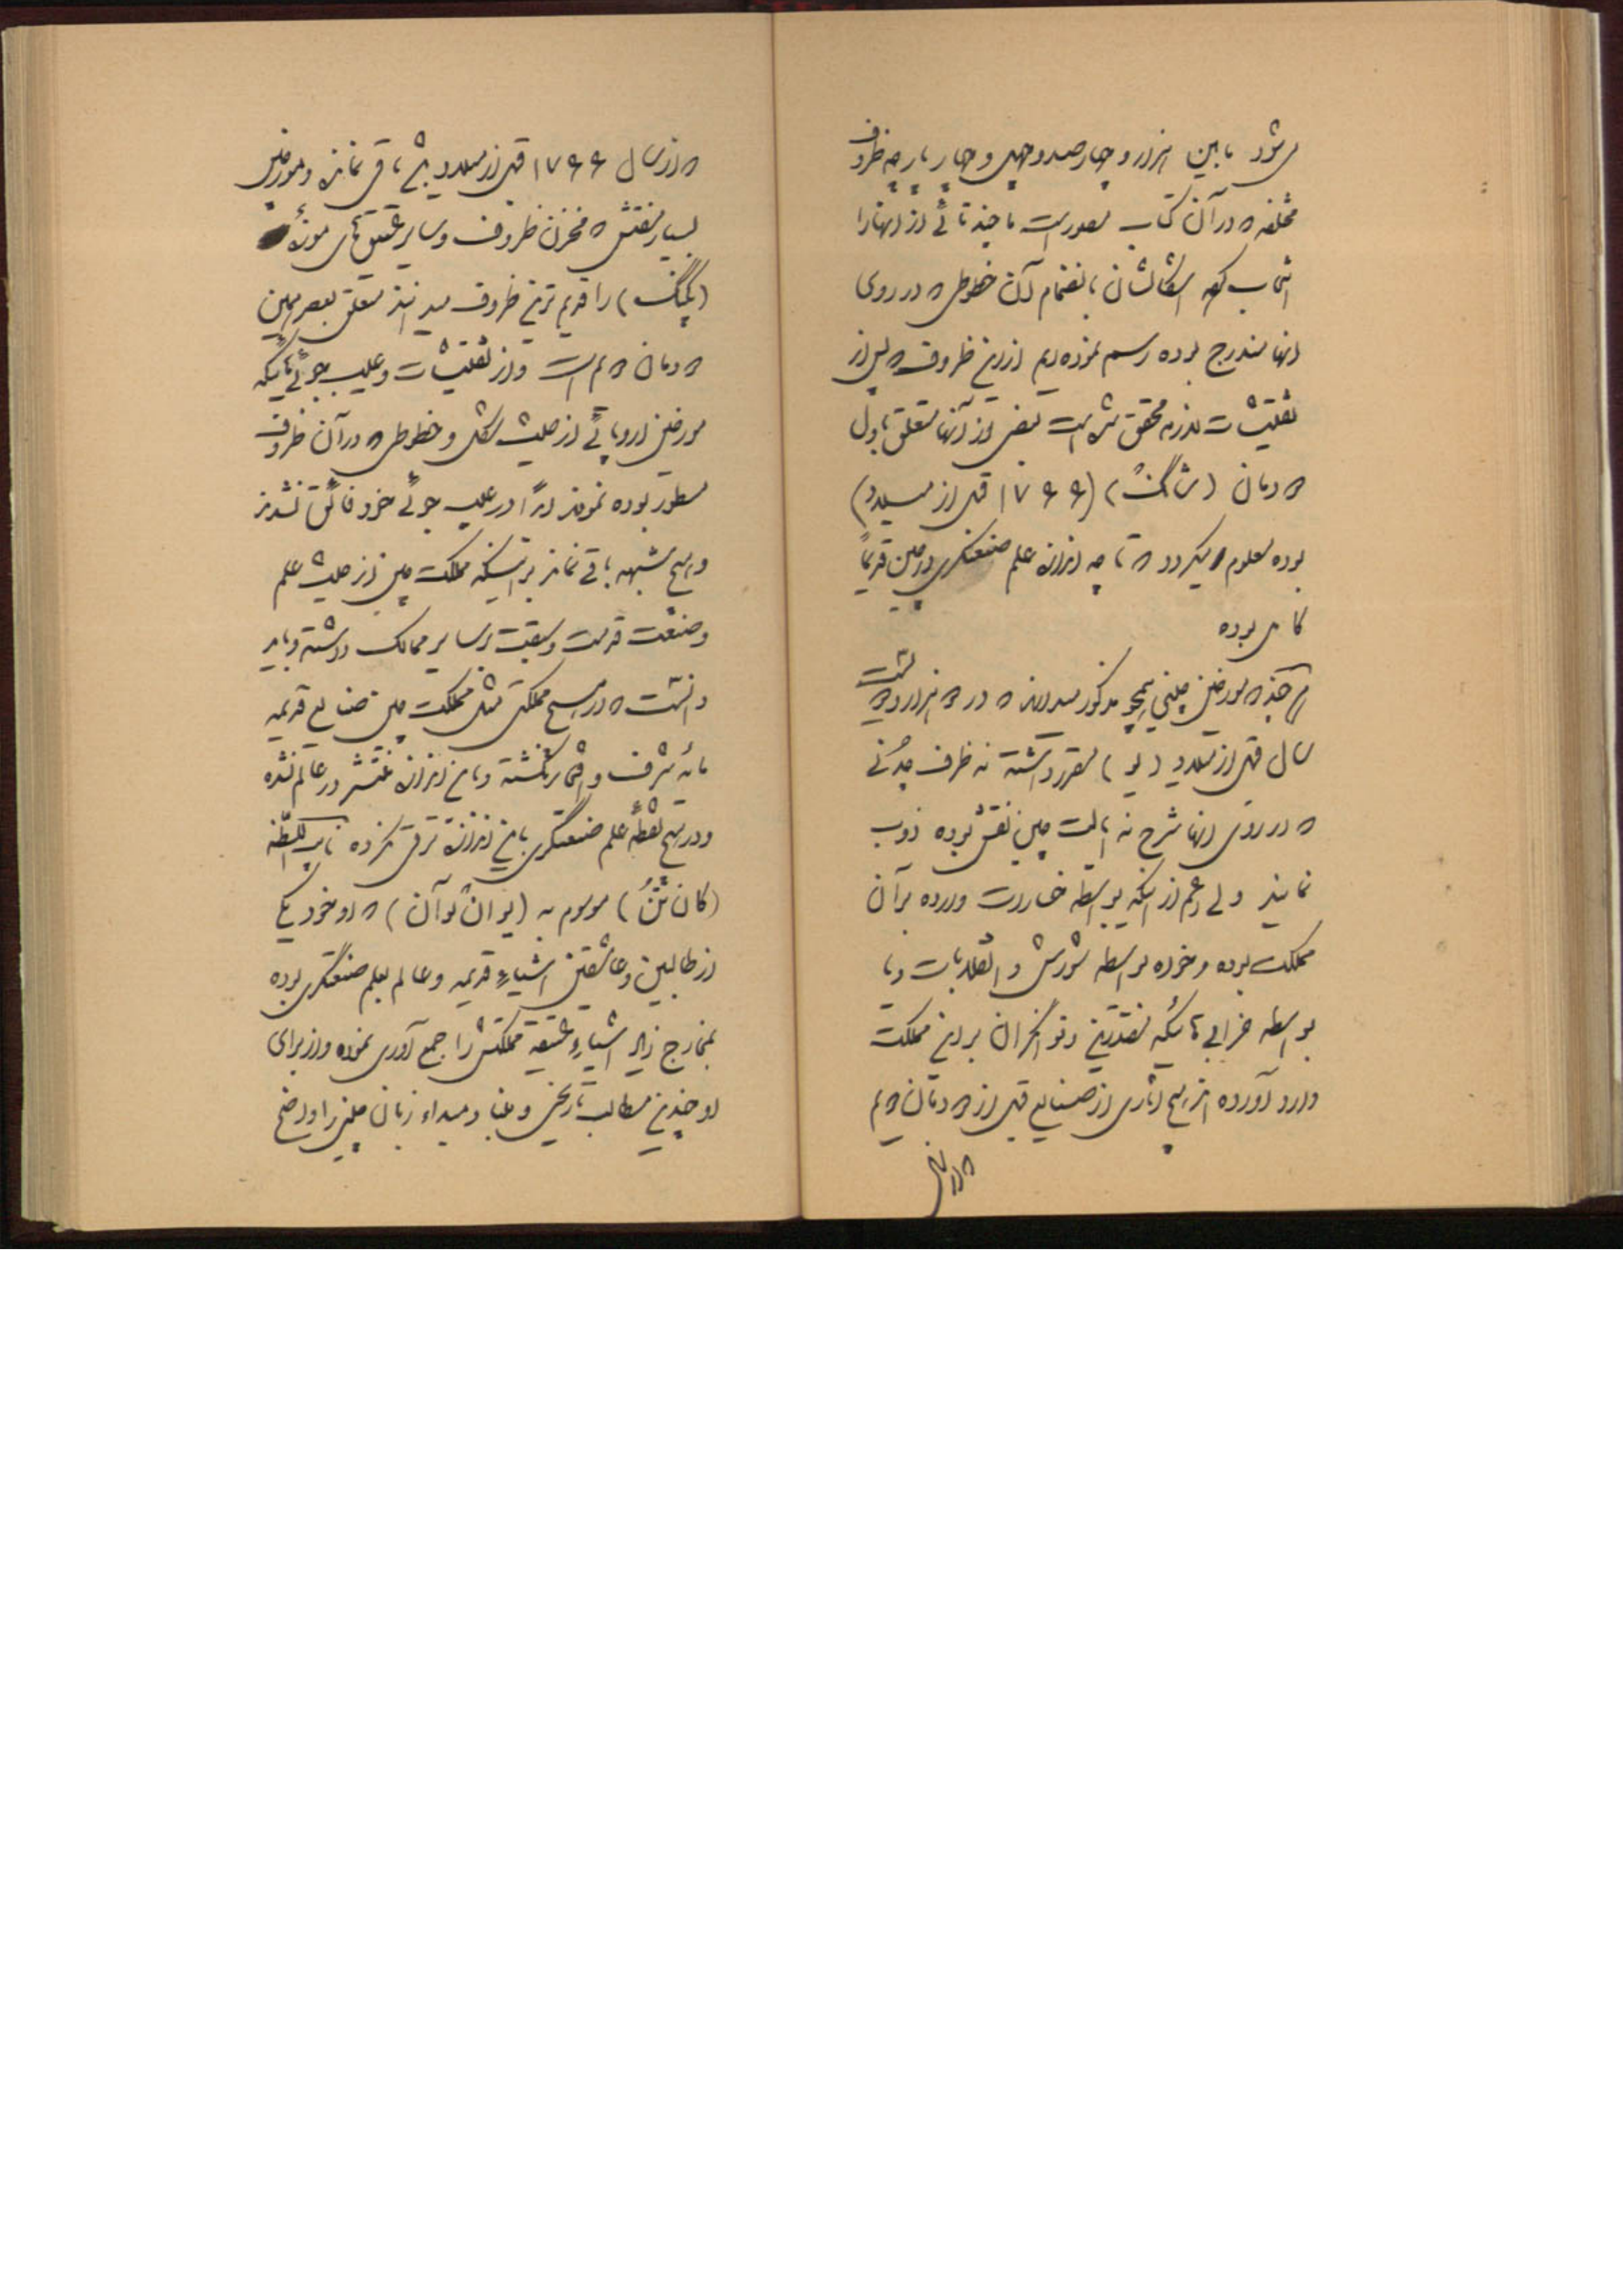 می‌شود مابین هزار و چهارصد و چهل و چهار پارچه ظروف
مختلفه که در آن کتاب مصور است ما چند تائی از آنها را
انتخاب کرده اشکالشان بانضمام آن خطوطی که در روی
آنها مندرج بوده رسم نموده‌ایم از این ظروف که پس از
تفتیشات لازمه محقق شده است بعضی از آنها متعلق باول
دودمان (شانگ) (۱۷۶۶ قبل از میلاد)
بوده معلوم میگردد که تا چه اندازه علم صنعتگری در چین قدیماً
کامل بوده
هر چند که مورخین چینی مذکور میدارند که در دو هزار و دویست
سال قبل از میلاد (یو) مقرر داشته نه ظرف چدنی
که در روی آنها شرح نه ایالت چین نقش بوده ذوب
نمایند ولی اعم از اینکه بواسطه خسارت وارده بر آن
مملکت بوده و خواه بواسطه شورش و انقلابات و یا
بواسطه خرابی‌هائیکه مقتدرین و فوق‌الجران بر این مملکت
وارد آورده‌اند هیچ آثاری از صنایع قبل از دودمان دویم
که از سال
که از سال ۱۷۶۶ قبل از میلاد باشد باقی نمانده و مورخین
بسیار مفتش که مخزن ظروف و سایر عتیقه‌های موزهٔ
(پکنگ) را قدیم‌ترین ظروف میدانند متعلق بعصر همین
دودمان دویم است و از تفتیشات و عیب‌جوئی‌هائیکه
مورخین اروپائی از حیث شکل و خطوطی که در آن ظروف
مسطور بوده نموده‌اند ابداً در عیب‌جوئی خود فائق نشدند
و هیچ شبهه باقی نماند بر اینکه مملکت چین از حیث علم
و صنعت قدمت و سبقت بر سایر ممالک داشته و باید
دانست که در هیچ مملکتی مثل مملکت چین صنایع قدیمه
مایهٔ شرف و افتخار نگشته و باین اندازه منتشر در عالم نشده
و در هیچ نقطهٔ علم صنعتگری باین اندازه ترقی نکرده نایب‌السلطنه
(کان تن) موسوم به (یوان یوآن) که او خود یکی
از طالبین و عاشقین اشیاء قدیمه و عالم بعلم صنعتگری بوده
بمخارج زیاد اشیاء عتیقه مملکتش را جمع آوری نموده و از برای
او چندین مطالب تاریخی و بنا و مبداء زبان چینی را واضح